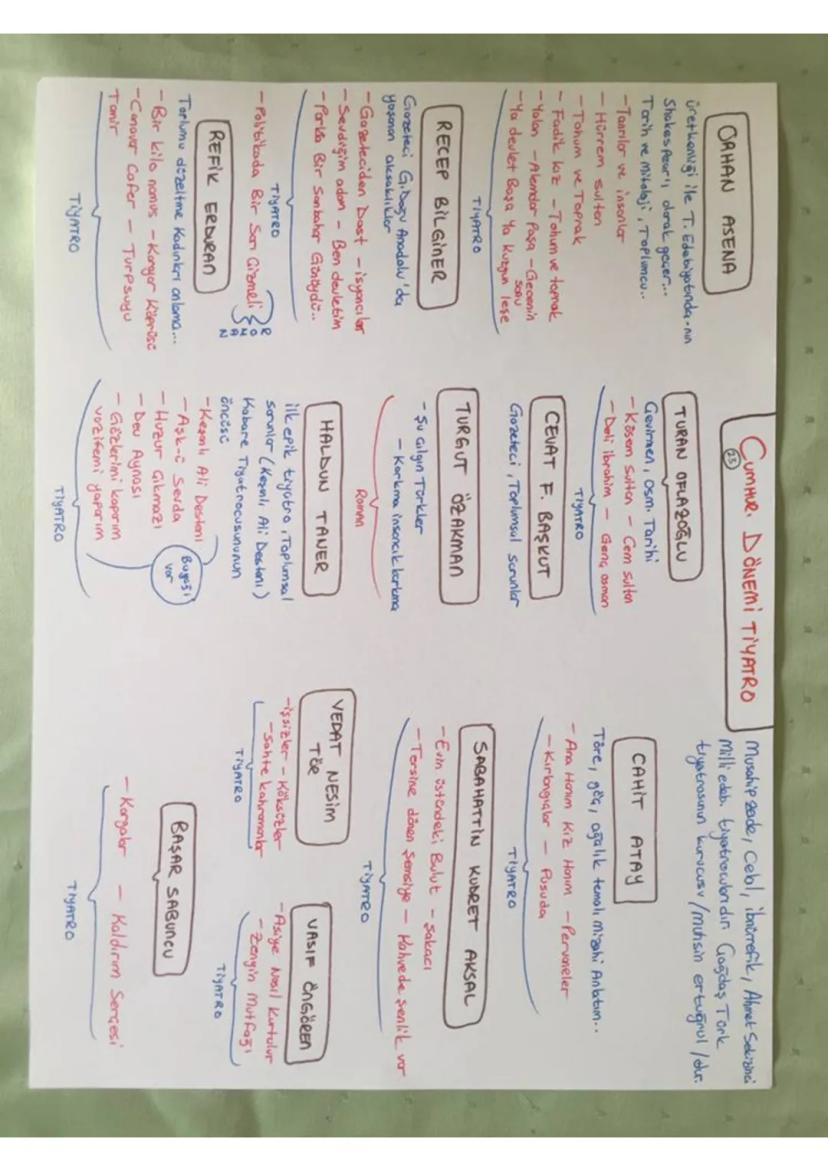 CUMHUR. DÖNEMİ TİYATRO
23
Musahipzade, Celal, İbnürrefik, Ahmet Sekizinci
Milli edebi tiyatrocularıdır. Çağdaş Türk
tiyatrosunun kurucusu /muhsin ertuğrul /dur.
ORHAN ASENA
üretkenliği ile T. Edebiyatında-nın
Shakespear'ı olarak geçer...
Tarih ve Mitoloji, Toplumcu..
- Tanrılar ve insanlar
- Hürrem sultan
- Tohum ve Toprak
- Fadik kız - Tohum ve tomak
- Yalan - Alemdar Paşa - Gecenin sonu
- Ya devlet Başa Ya kuzgun leşe
TİYATRO
RECEP BİLGİNER
Gazeteci G.Doğu Anadolu'da
yaşanan aksaklıklar
- Gazeteciden Dost - isyancılar
- Sevdiğim adam - Ben devletim
- Parkta Bir Sonbahar Günüydü..
TİYATRO
- Politikada Bir Sarı Çizmeli
ROMAN
REFİK ERDURAN
Toplumu düzeltme Kadınları anlama...
- Bir kilo namus - Karayar Köprüsü
- Canavar Cafer - Turp suyu
Tamir
TİYATRO
TURAN OFLAZOĞLU
Çevirmen, Osm. Tarihi
- Kösem Sultan - Cem sultan
- Deli ibrahim - Genç osman
TİYATRO
CEVAT F. BAŞKUT
Gazeteci, Toplumsal sorunlar
TURGUT ÖZAKMAN
- Şu Çılgın Türkler
- Korkma insancık korkma
Roman
HALDUN TANER
ilk epik tiyatro, Toplumsal
sorunlar (Keşanlı Ali Destanı)
Kabare Tiyatrocusununun
öncüsü
- Keşanlı Ali Destanı
- Aşk-ı Sevda
- Huzur Çıkmazı
- Dev Aynası
- Gözlerimi kaparım
vazifemi yaparım
Bugüsü var
TİYATRO
CAHİT ATAY
Töre, göç, ağalık temalı mizahi Anlatım..
- Ana Hanım Kız Hanım - Pervaneler
- Kırlangıçlar - Pusuda
TİYATRO
SABAHATTİN KUDRET AKSAL
- Evin üstündeki Bulut - Şakacı
- Tersine dönen Şemsiye - Kahvede şenlik var
TİYATRO
VEDAT NESİM
TÖR
- işsizler - Köksüzler
- Sahte kahramanlar
TİYATRO
VASIF ÖNGÖREN
- Asiye Nasıl Kurtulur
- Zengin Mutfağı
TİYATRO
BAŞAR SABUNCU
- Kargalar - Kaldırım Serçesi
TİYATRO